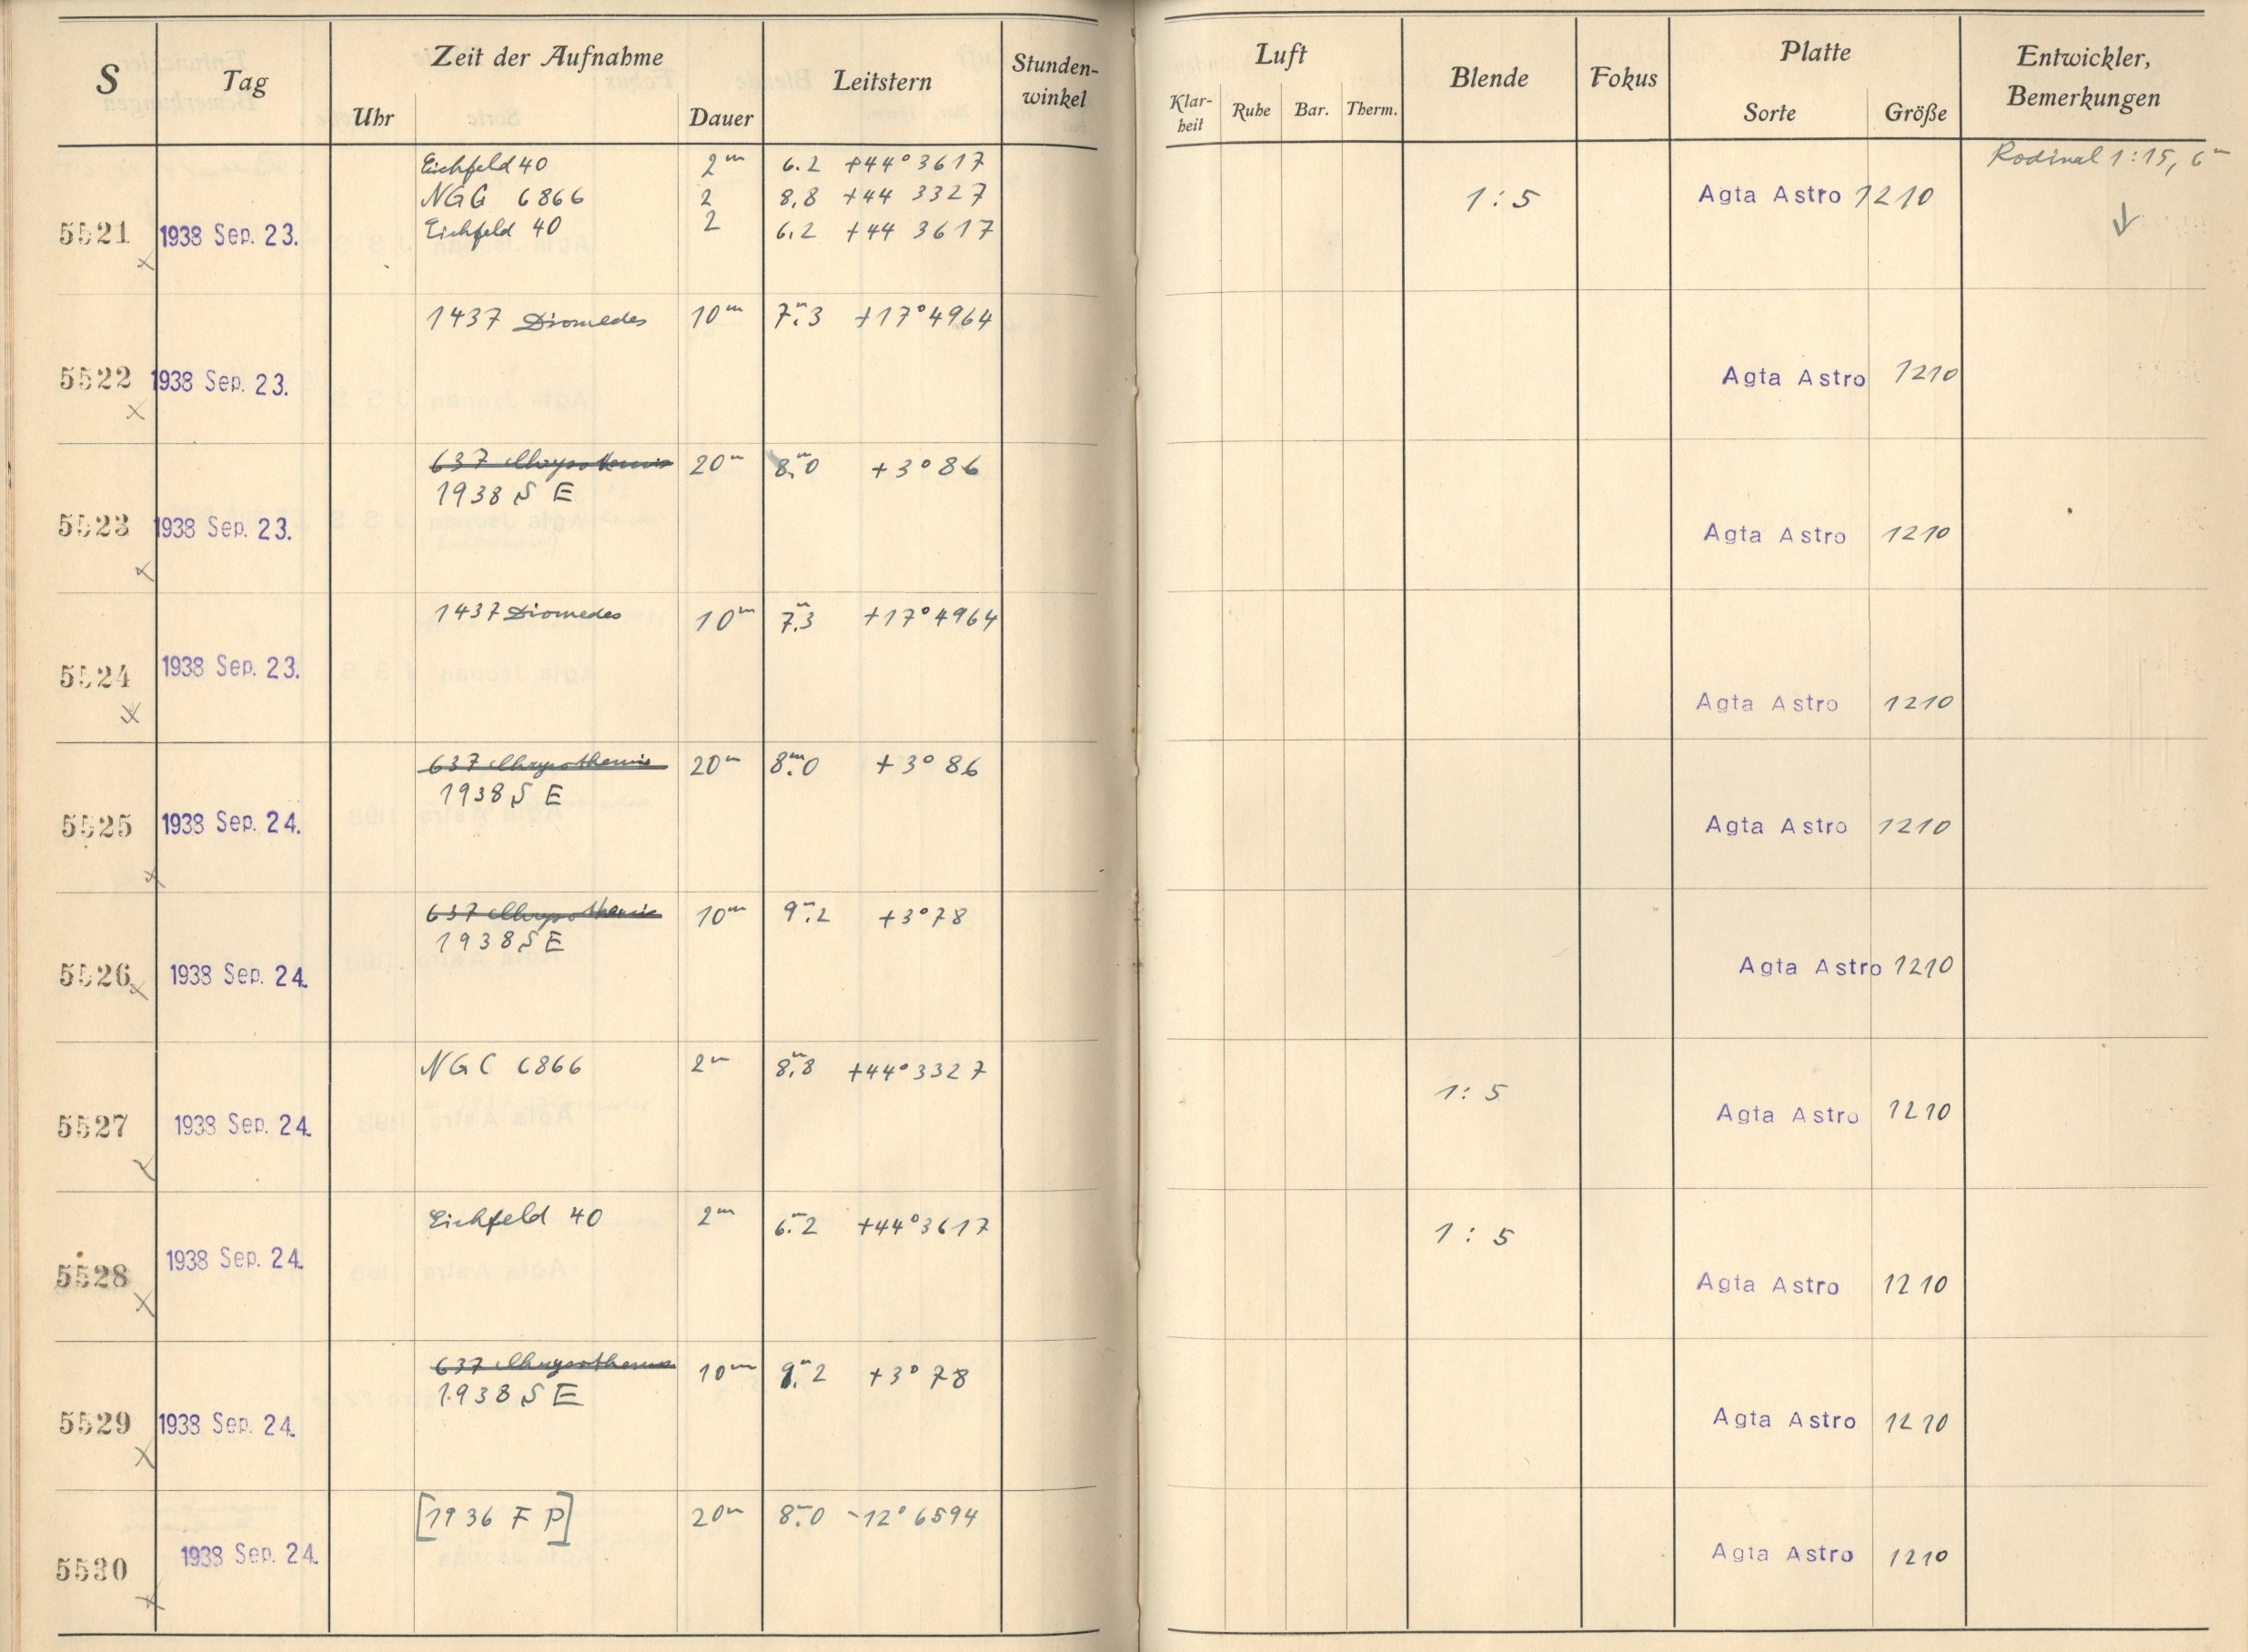 S Tag Zeit der Aufnahme Leitstern Stunden-
winkel Luft Blende Fokus Platte Entwickler,
Bemerkungen
Uhr Dauer Klar-
heit Ruhe Bar. Therm. Sorte Größe
Eichfeld 40 2m 6.2 +44° 3617 Rodinal 1:15, 6m
NGC 6866 2 8,8 +44 3327 1:5 Agta Astro 1210
5521 1938 Sep. 23. Eichfeld 40 2 6,2 +44 3617 ↓
1437 Diomedes 10m 7m.3 +17° 4964
5522 1938 Sep. 23. Agta Astro 1210
637 Chrysothemis 20m 8m.0 +3° 86
1938 S E
5523 1938 Sep. 23. Agta Astro 1210
1437 Diomedes 10m 7m.3 +17° 4964
5524 1938 Sep. 23. Agta Astro 1210
637 Chrysothemis 20m 8m.0 +3° 86
1938 S E
5525 1938 Sep. 24. Agta Astro 1210
637 Chrysothemis 10m 9m.2 +3° 78
1938 S E
5526 1938 Sep. 24. Agta Astro 1210
NGC 6866 2m 8m.8 +44° 3327 1:5
5527 1938 Sep. 24. Agta Astro 1210
Eichfeld 40 2m 6m.2 +44° 3617 1:5
5528 1938 Sep. 24. Agta Astro 1210
637 Chrysothemis 10m 9m.2 +3° 78
1938 S E
5529 1938 Sep. 24. Agta Astro 1210
[1936 F P] 20m 8m.0 -12° 6594
5530 1938 Sep. 24. Agta Astro 1210